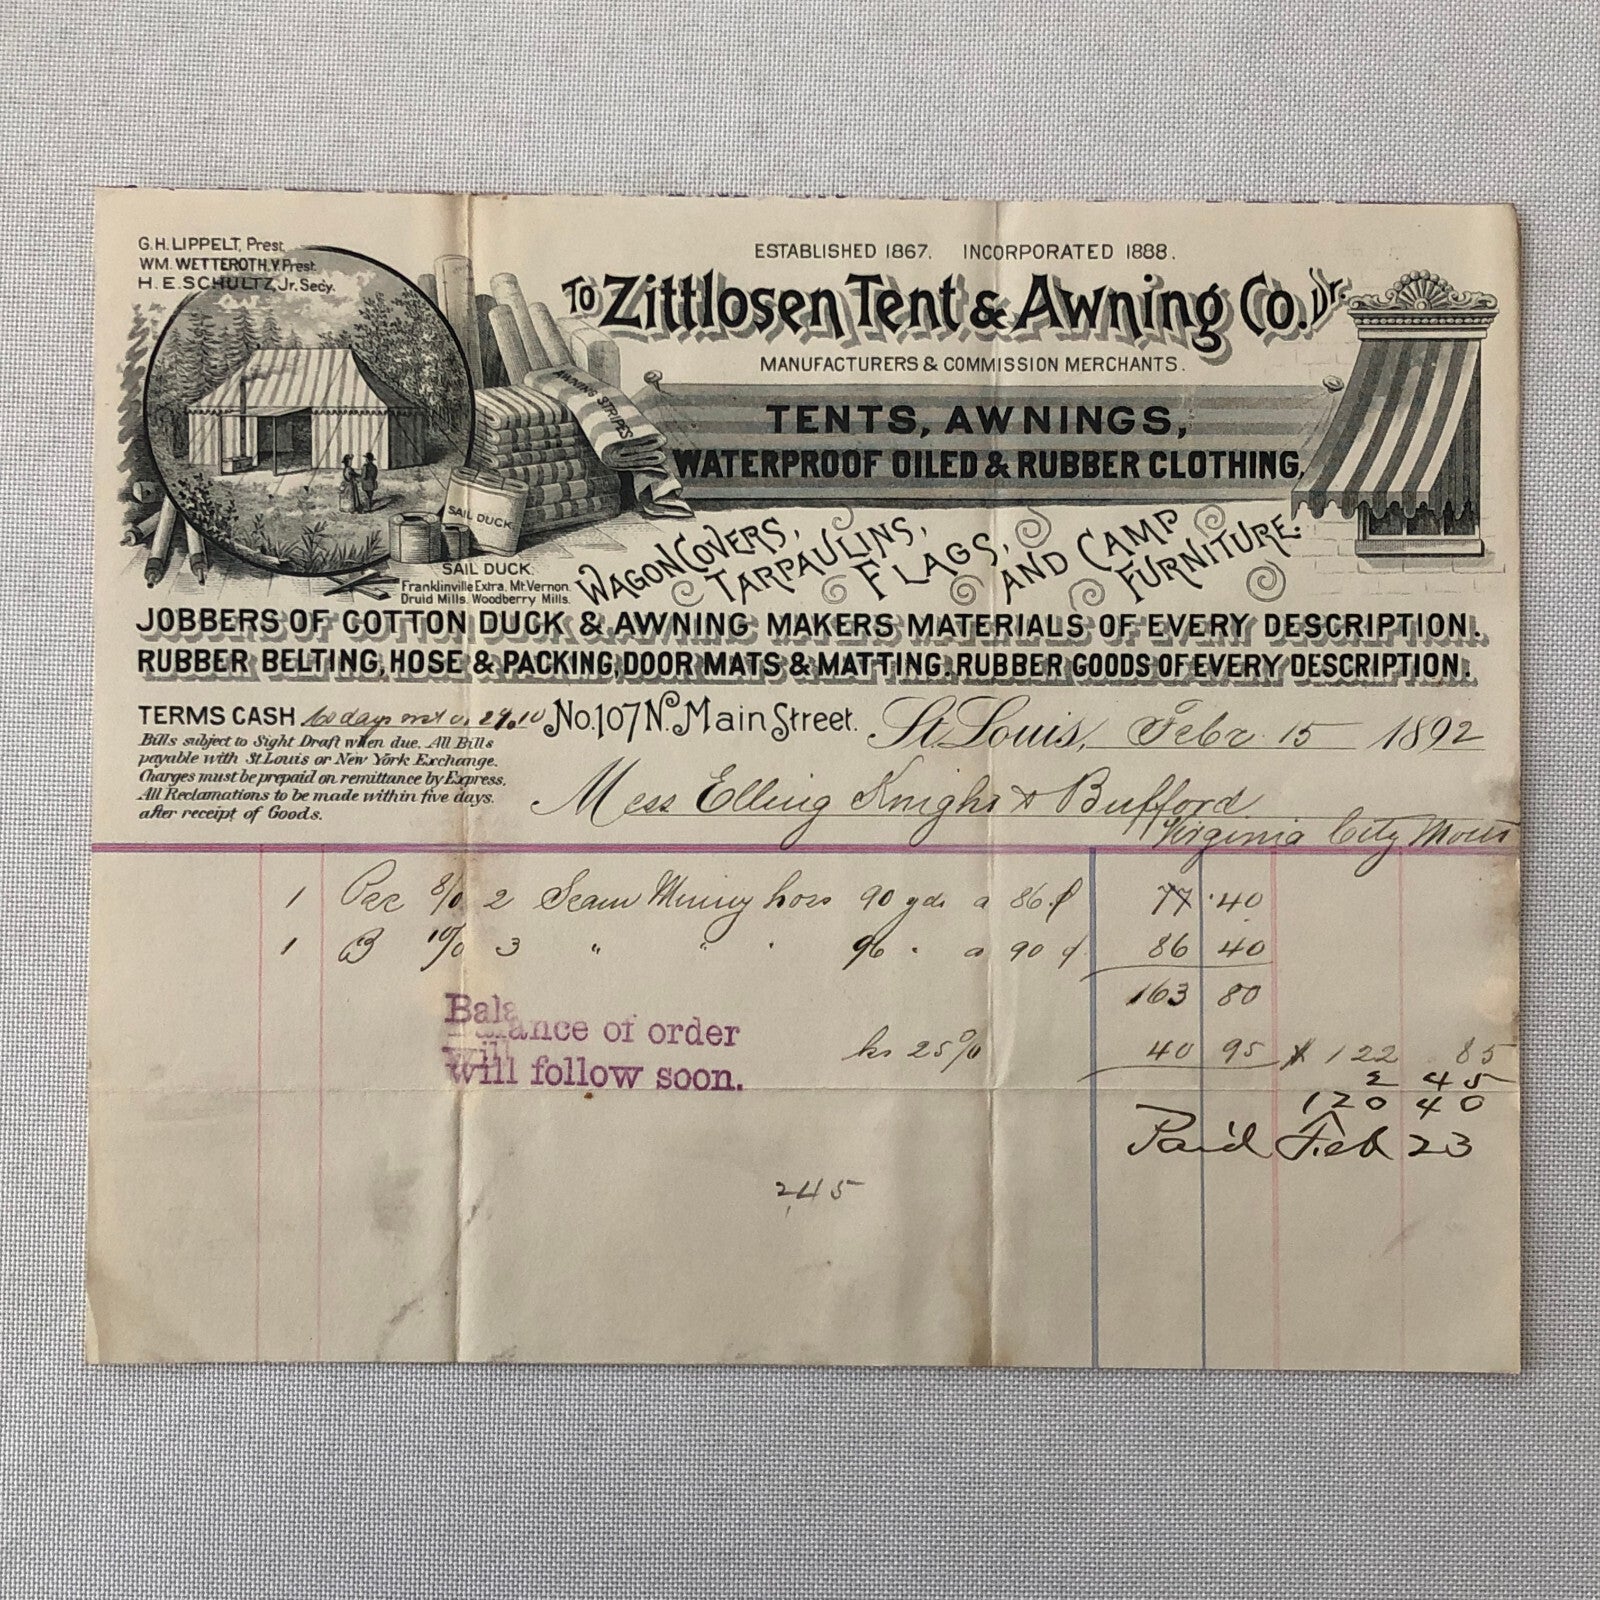 G.H. LIPPELT, Prest.
WM. WETTEROTH, V. Prest.
H. E. SCHULTZ, Jr. Secy.
ESTABLISHED 1867. INCORPORATED 1888.
TO Zittlosen Tent & Awning Co. Dr.
MANUFACTURERS & COMMISSION MERCHANTS.
AWNING STRIPES
TENTS, AWNINGS,
WATERPROOF OILED & RUBBER CLOTHING,
SAIL DUCK
WAGON COVERS, TARPAULINS, FLAGS, AND CAMP FURNITURE.
SAIL DUCK.
Franklinville Extra. Mt. Vernon.
Druid Mills. Woodberry Mills.
JOBBERS OF COTTON DUCK & AWNING MAKERS MATERIALS OF EVERY DESCRIPTION.
RUBBER BELTING, HOSE & PACKING, DOOR MATS & MATTING. RUBBER GOODS OF EVERY DESCRIPTION.
TERMS CASH 60 days net or 2% 10 No. 107 N. Main Street. St. Louis, Febr. 15 1892
Bills subject to Sight Draft when due. All Bills
payable with St. Louis or New York Exchange.
Charges must be prepaid on remittance by Express.
All Reclamations to be made within five days.
after receipt of Goods.
Mess Elling Knight & Bufford
Virginia City Mont
1 8/0 2 Seam Mining hose 90 yds a 86 ¢ 77.40
1 B 10/0 3 " " " 96 " a 90 ¢ 86 40
163 80
Bala
Balance of order
will
will follow soon.
ls 25% 40 95 $122 85
2 45
120 40
Paid Feb 23
245